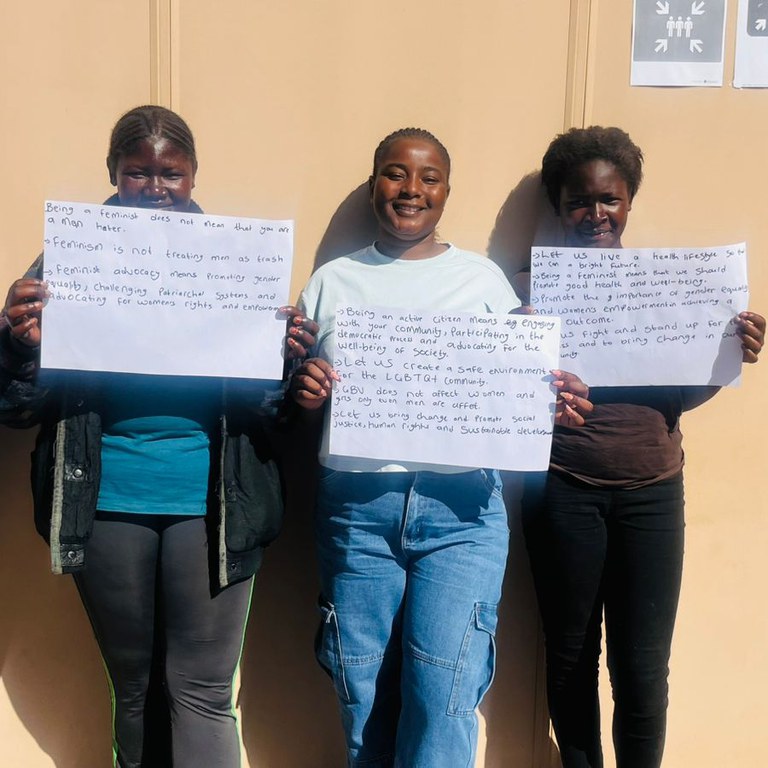 Being a feminist does not mean that you are
a man hater.
→ Feminism is not treating men as trash
→ Feminist advocacy means Promoting gender
equality, challenging Patriarchal Systems and
advocating for women's rights and empower
→ Being an active citizen means engaging
with your community, Participating in the
democratic process and advocating for the
well-being of Society.
→ Let us create a safe environment
for the LGBTQ+ community.
GBV does not affect women and
girls only even men are affet.
→ Let us bring change and Promote social
justice, human rights and Sustainable
→ Let us live a health lifestyle so to
we can a bright future.
→ Being a feminist means that we should
Promote good health and well-being.
→ Promote the importance of gender equality
and women's empowerment in achieving a
outcome.
us fight and stand up for
and to bring change in our